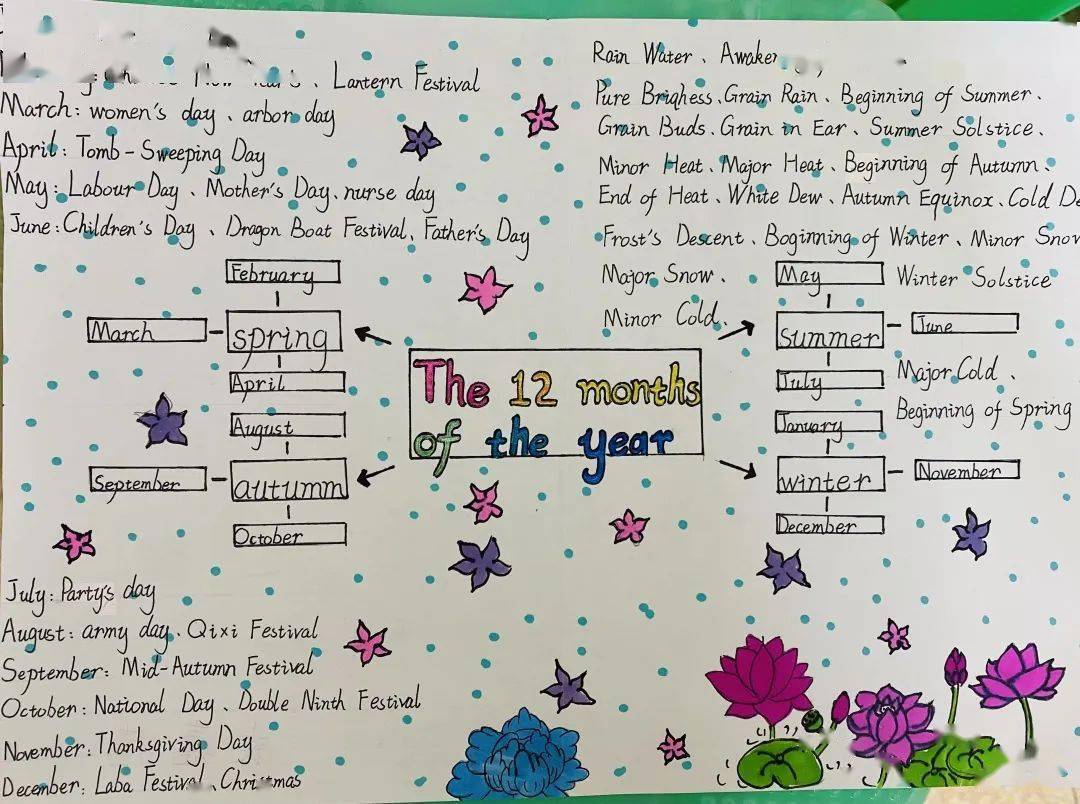 Lantern Festival
March: women's day、arbor day
April: Tomb-Sweeping Day
May: Labour Day、Mother's Day、nurse day
June: Children's Day、Dragon Boat Festival、Father's Day
Rain Water、
Pure Brighess、Grain Rain、Beginning of Summer、
Grain Buds、Grain in Ear、Summer Solstice、
Minor Heat、Major Heat、Beginning of Autumn、
End of Heat、White Dew、Autumn Equinox、Cold
Frost's Descent、Boginning of Winter、Minor Snow
Major Snow、
Winter Solstice
Minor Cold、
Major Cold、
Beginning of Spring
February
March
spring
April
May
summer
June
July
The 12 months
of the year
August
September
autumm
October
January
winter
November
December
July: Party's day
August: army day、Qixi Festival
September: Mid-Autumn Festival
October: National Day、Double Ninth Festival
November: Thanksgiving Day
December: Laba Festival、Christmas